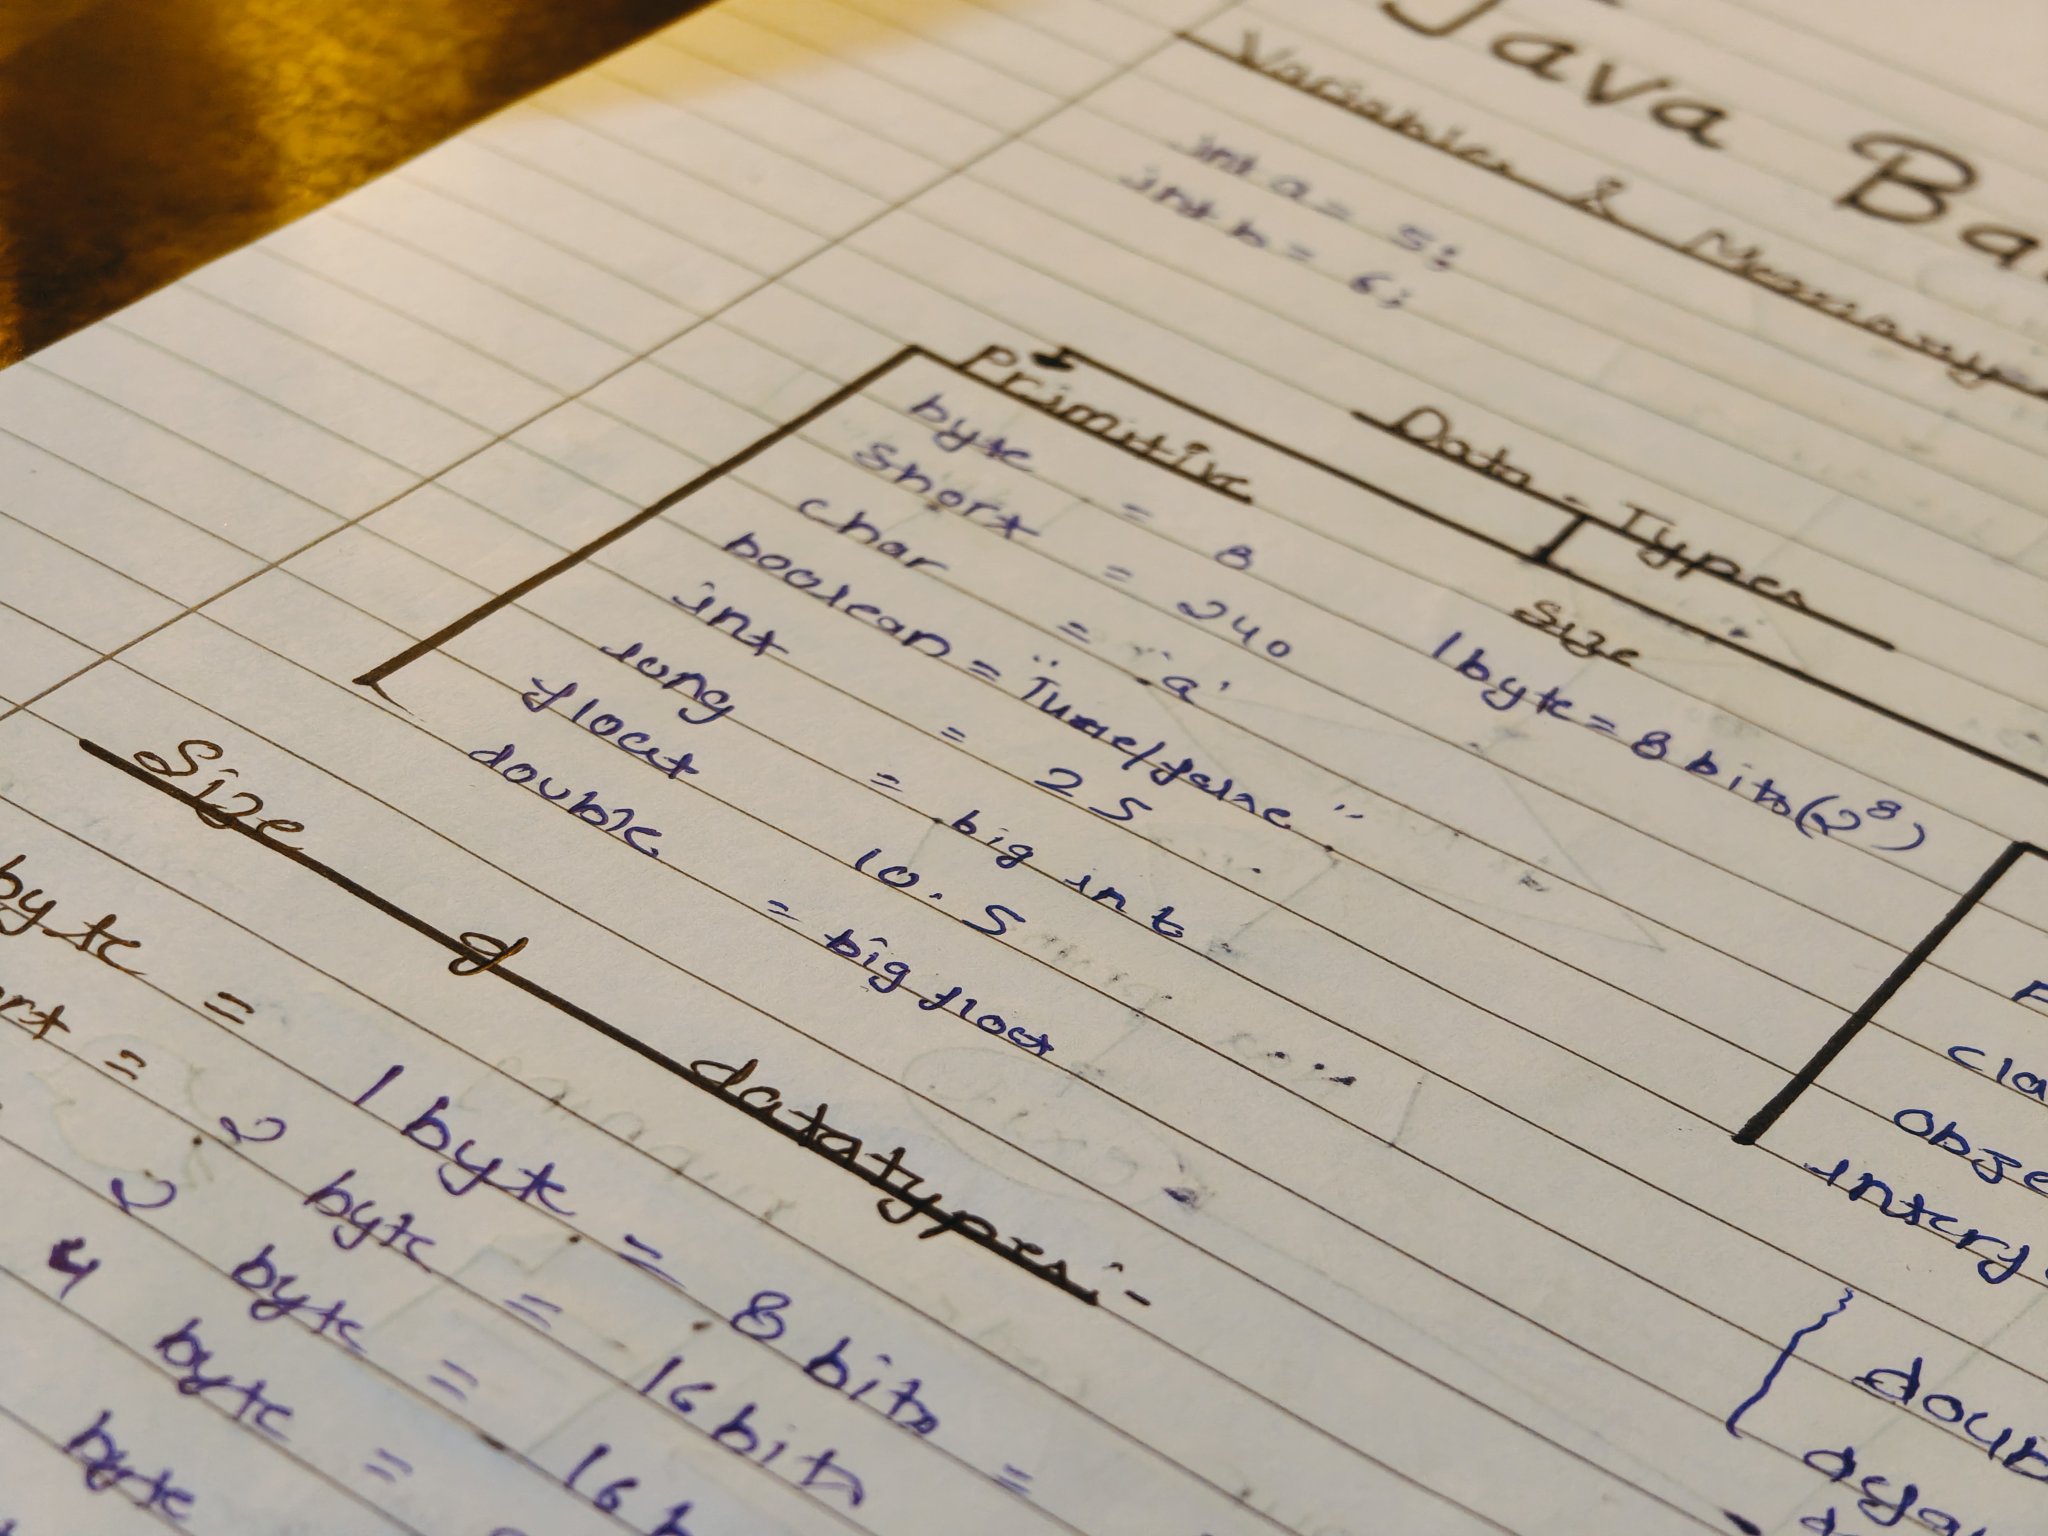 Java Ba
Variables & Memory
int a = 5;
int b = 6;
Data-Types
Primitive
byte = 8
short = 240
char = 'a'
boolean = "True/false"
int = 25
long = big int
float 10.5
double = big float
Size
1byte = 8 bits (2⁸)
cla
obje
Size of datatypes:-
byte = 1 byte = 8 bits =
ort = 2 byte = 16 bits
2 byte = 16 b
4 byte =
byte
doub